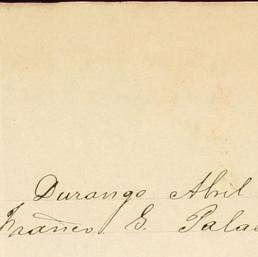 Durango Abril
Franco. G. Palas